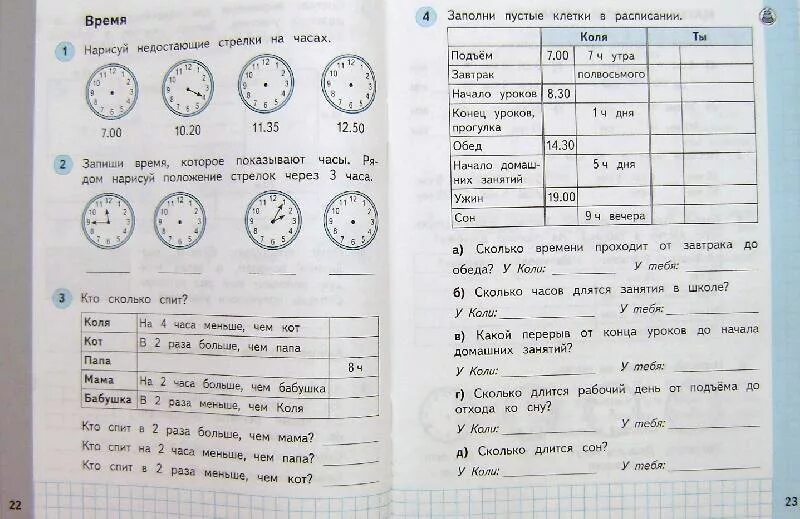 Время
1 Нарисуй недостающие стрелки на часах.
11 12 1
10 2
9 3
8 4
7 6 5
11 12 1
10 2
9 3
8 4
7 6 5
11 12 1
10 2
9 3
8 4
7 6 5
11 12 1
10 2
9 3
8 4
7 6 5
7.00 10.20 11.35 12.50
2 Запиши время, которое показывают часы. Ря-
дом нарисуй положение стрелок через 3 часа.
11 12 1
10 2
9 3
8 4
7 6 5
11 12 1
10 2
9 3
8 4
7 6 5
11 12 1
10 2
9 3
8 4
7 6 5
11 12 1
10 2
9 3
8 4
7 6 5
3 Кто сколько спит?
Коля На 4 часа меньше, чем кот
Кот В 2 раза больше, чем папа
Папа 8 ч
Мама На 2 часа больше, чем бабушка
Бабушка В 2 раза меньше, чем Коля
Кто спит в 2 раза больше, чем мама?
Кто спит на 2 часа меньше, чем папа?
Кто спит в 2 раза меньше, чем кот?
22
4 Заполни пустые клетки в расписании.
Коля Ты
Подъём 7.00 7 ч утра
Завтрак полвосьмого
Начало уроков 8.30
Конец уроков, 1 ч дня
прогулка
Обед 14.30
Начало домаш- 5 ч дня
них занятий
Ужин 19.00
Сон 9 ч вечера
а) Сколько времени проходит от завтрака до
обеда? У Коли: У тебя:
б) Сколько часов длятся занятия в школе?
У Коли: У тебя:
в) Какой перерыв от конца уроков до начала
домашних занятий?
У Коли: У тебя:
г) Сколько длится рабочий день от подъёма до
отхода ко сну?
У Коли: У тебя:
д) Сколько длится сон?
У Коли: У тебя:
23